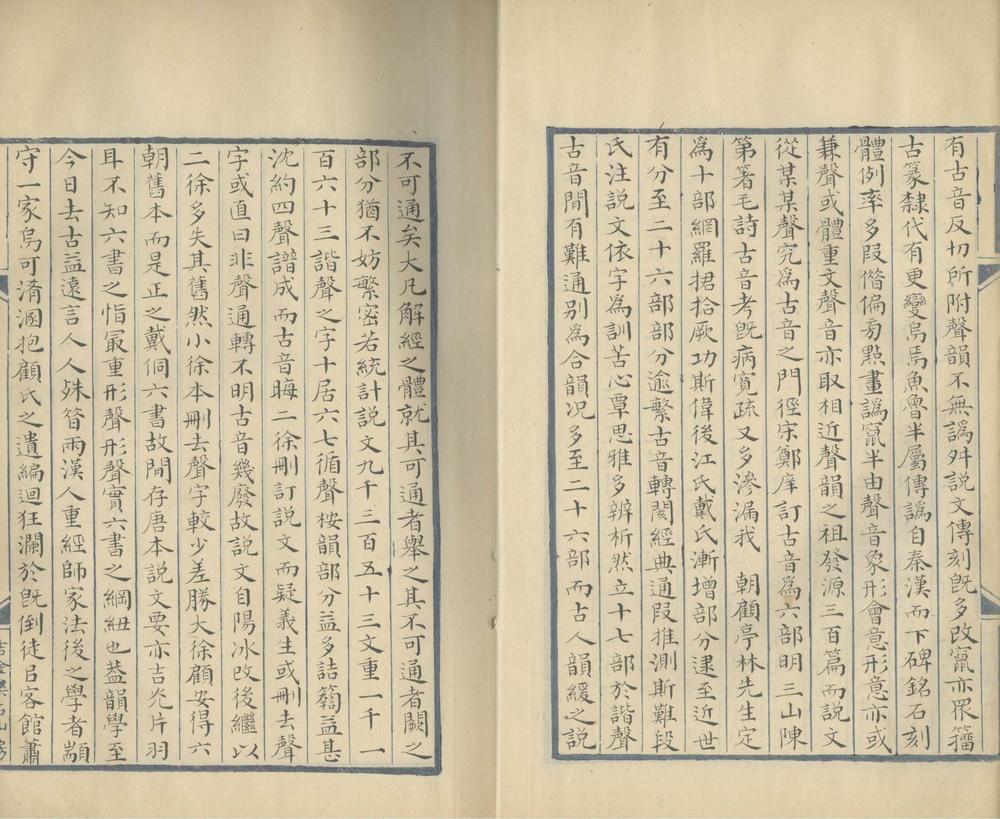 有古音反切所附聲韻不無譌舛説文傳刻旣多改竄亦罕籀
古篆隸代有更變烏焉魚魯半屬傳譌自秦漢而下碑銘石刻
體例率多叚偺偏旁㸃畫譌竄半由聲音象形會意形意亦或
兼聲或體重文聲音亦取相近聲韻之祖發源三百篇而說文
從某某聲究爲古音之門徑宋鄭庠訂古音爲六部明三山陳
第箸毛詩古音考旣病寬疏又多滲漏我　朝顧亭林先生定
爲十部網羅捃拾厥功斯偉後江氏戴氏漸增部分逮至近世
有分至二十六部部分逾繁古音轉閡經典通叚推測斯難段
氏注説文依字爲訓苦心覃思雅多辨析然立十七部於諧聲
古音閒有難通别爲合韻况多至二十六部而古人韻緩之説
不可通矣大凡解經之體就其可通者舉之其不可通者闕之
部分猶不妨繁密若統計説文九千三百五十三文重一千一
百六十三諧聲之字十居六七循聲桉韻部分益多詰籀益甚
沈約四聲譜成而古音晦二徐刪訂説文而疑義生或刪去聲
字或直曰非聲通轉不明古音幾廢故説文自陽冰改後繼以
二徐多失其舊然小徐本刪去聲字較少差勝大徐顧安得六
朝舊本而是正之戴侗六書故閒存唐本説文要亦吉光片羽
耳不知六書之恉最重形聲形聲實六書之綱紐也葢韻學至
今日去古益遠言人人殊昝兩漢人重經師家法後之學者顓
守一家烏可淆溷抱顧氏之遺編迴狂瀾於旣倒徒㠯客館蕭
吉金樂石山房